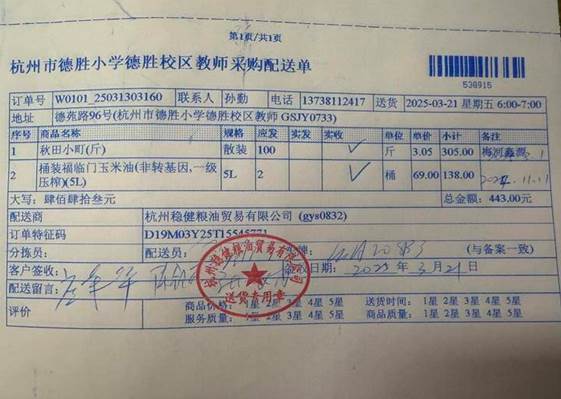 第1页/共1页
杭州市德胜小学德胜校区教师采购配送单
536915
订单号 W0101_25031303160 联系人 孙勤 电话 13738112417 送货 2025-03-21 星期五 6:00-7:00
地址 德苑路96号(杭州市德胜小学德胜校区教师 GSJY0733)
序号 商品名称 规格 应发 实发 实收 单位 单价 小计 备注
1 秋田小町(斤) 散装 100 斤 3.05 305.00 梅河鑫源
2 桶装福临门玉米油(非转基因,一级压榨)(5L) 5L 2 桶 69.00 138.00 2024.11.11
大写:肆佰肆拾叁元 总金额:443.00元
配送商 杭州稳健粮油贸易有限公司 (gys0832)
订单特征码 D19M03Y25T1554577
分拣员: 配送员: (与备案一致)
客户签收: 签收日期: 2025年3月21日
配送留言:
杭州稳健粮油贸易有限公司
送货专用章
评价 商品价格: 1星 2星 3星 4星 5星 送货时间: 1星 2星 3星 4星 5星
服务质量: 1星 2星 3星 4星 5星 商品质量: 1星 2星 3星 4星 5星